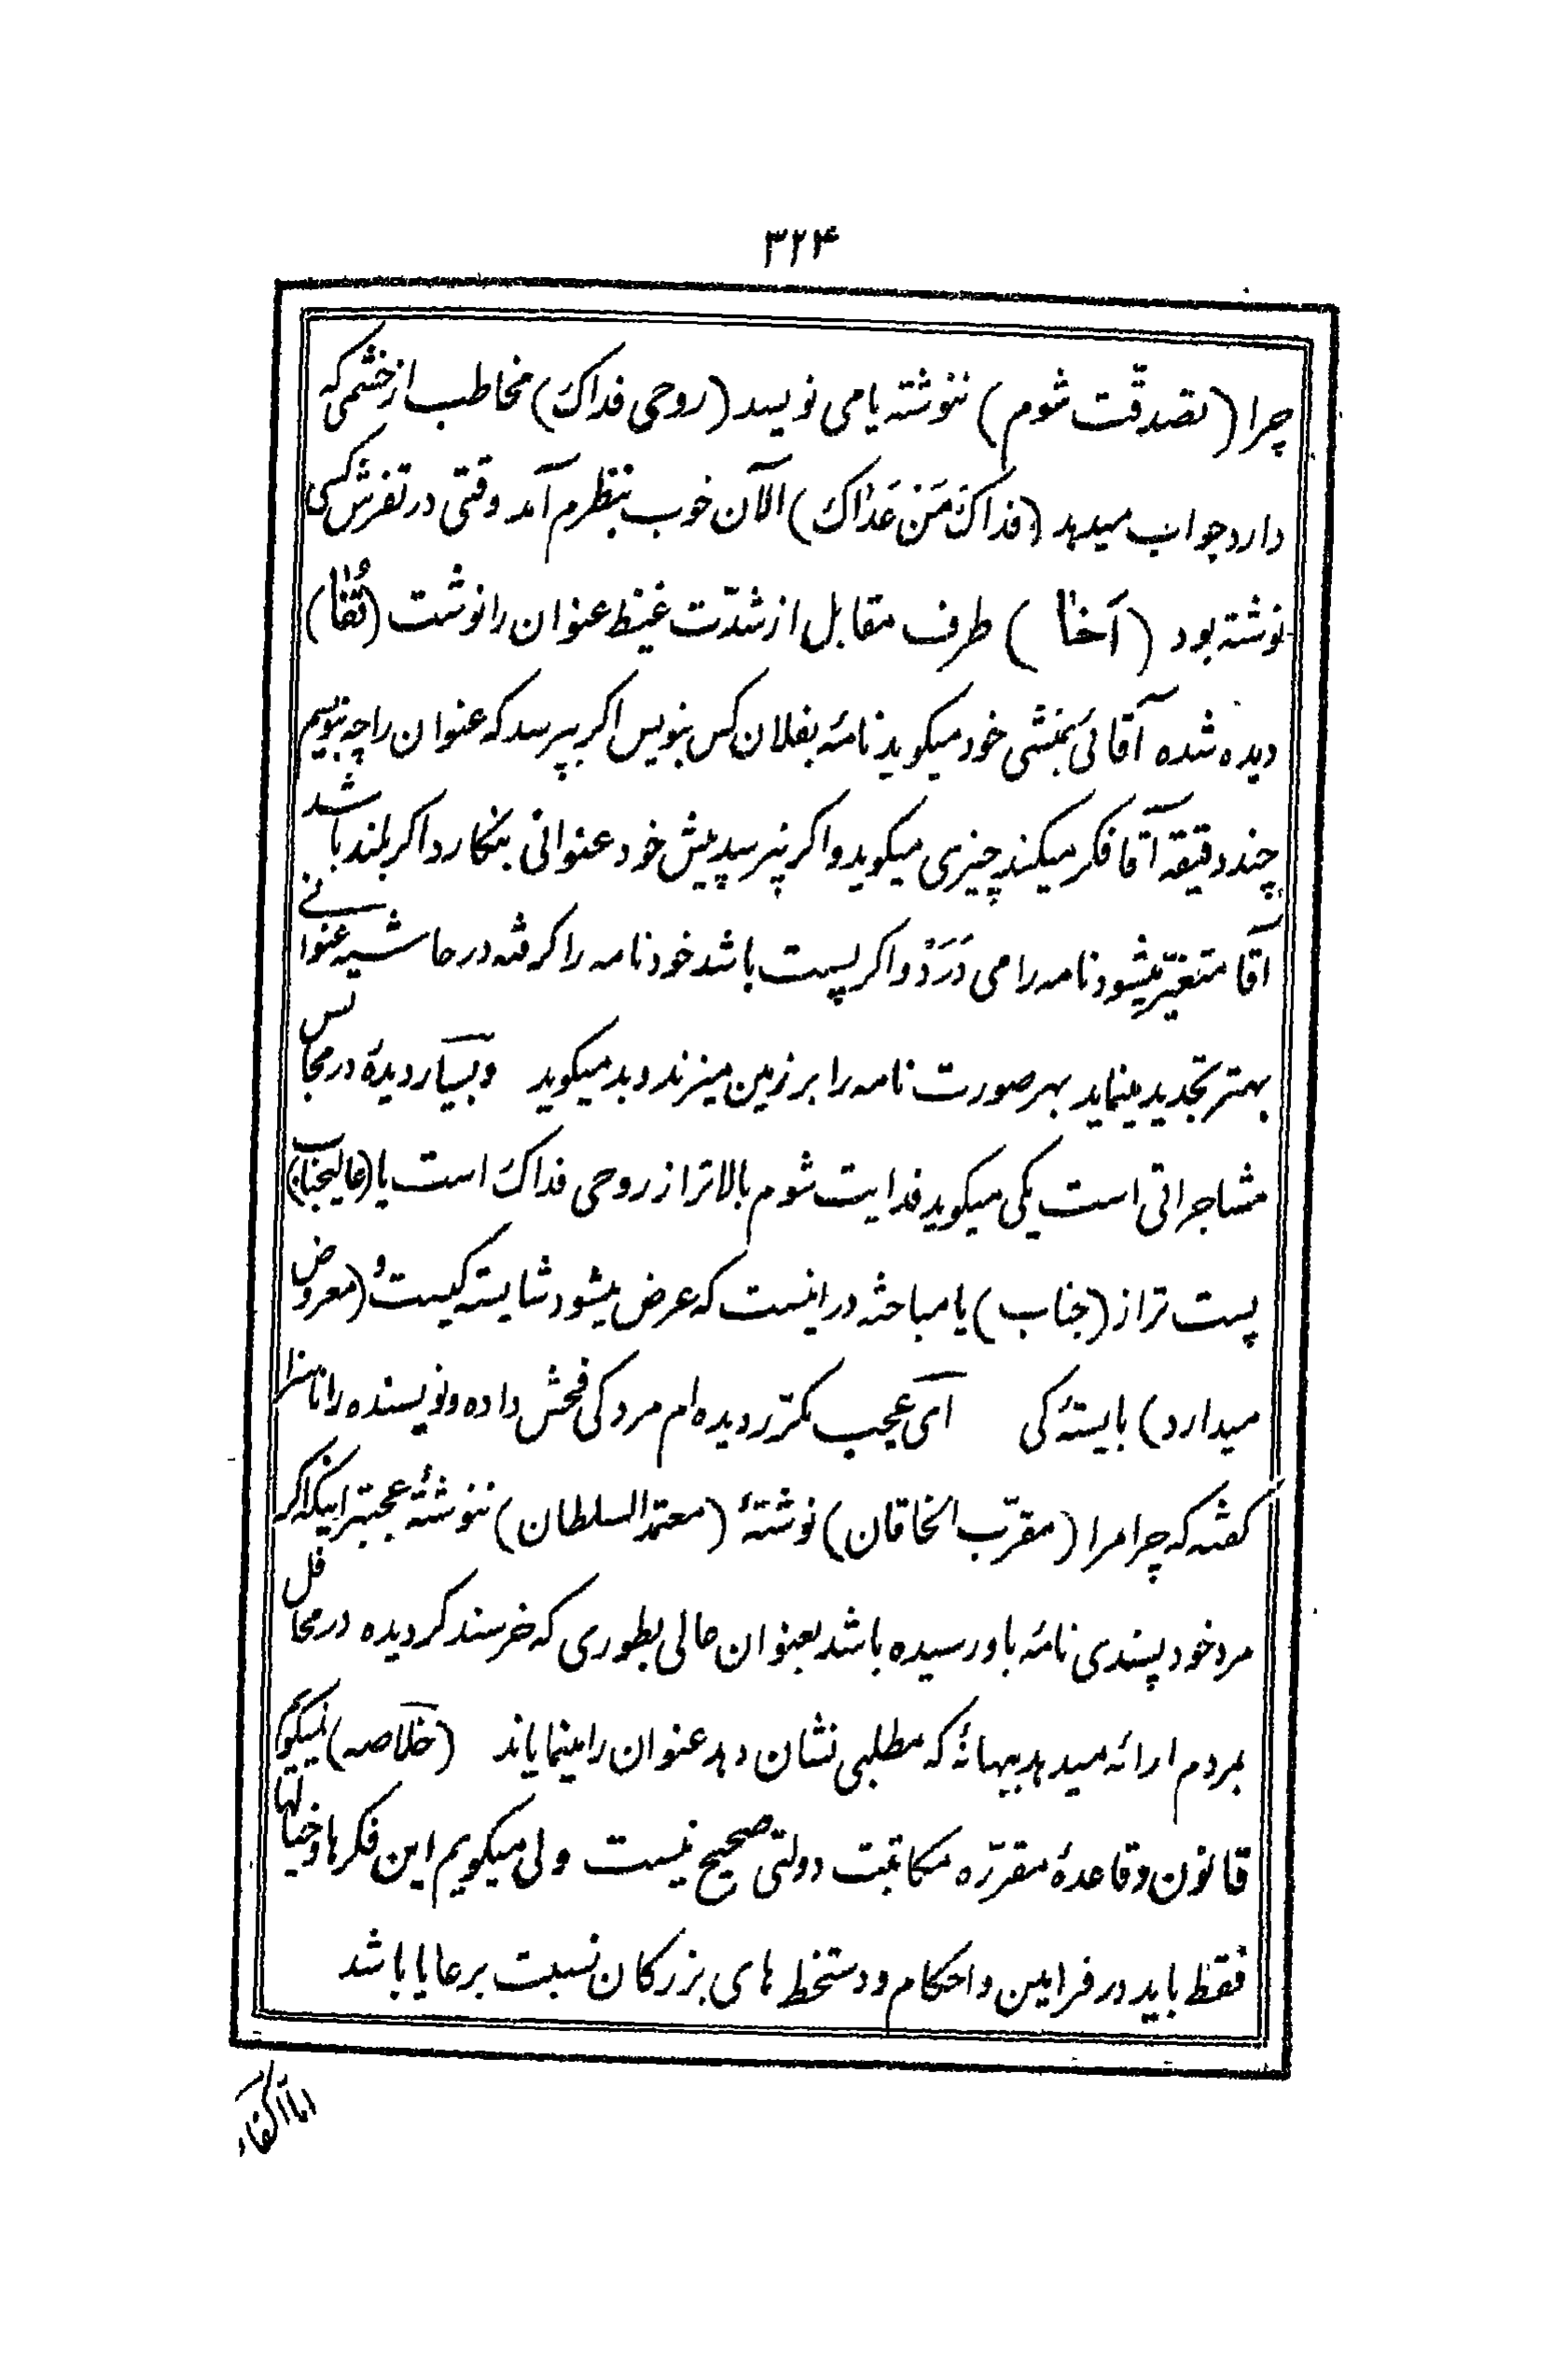 ۳۲۴
چرا (تصدقّت شوم) ننوشته یا می نویسد (روحی فداک) مخاطب از خشمی که
دارد جواب میدهد (فداکَ مَنْ عَداک) الآن خوب بنظرم آمد وقتی در تفرش کسی
نوشته بود (آخٰا) طرف مقابل از شدّت غیظ عنوان را نوشت (تُفٰا)
دیده شده آقائی بمنشی خود میکوید نامهٔ بفلان کس بنویس اکر بپرسد که عنوان را چه بنویسم
چند دقیقه آقا فکر میکند چیزی میکوید و اکر نپرسید پیش خود عنوانی بنکارد اکر بلند باشد
آقا متغیّر میشود نامه را می دَرَدْ و اکر پست باشد خود نامه را کرفته در حاشیه عنوانی
بهتر تجدید مینماید بهر صورت نامه را بر زمین میزند و بد میکوید و بسیار دیدهٔ در مجالس
مشاجراتی است یکی میکوید فدایت شوم بالاتر از روحی فداک است یا (عالیجناب)
پست تر از (جناب) یا مباحثه در اینست که عرض میشود شایسته کیست و (معروض
میدارد) بایستهٔ کی آی عجب مکرّر دیده ام مردکی فحش داده و نویسنده را ناسزا
کفته که چرا مرا (مقرّب الخاقان) نوشتهٔ (معتمد السلطان) ننوشتهٔ عجبتر اینکه اکر
مرد خود پسندی نامهٔ باو رسیده باشد بعنوان عالی بطوری که خرسند کردیده در محافل
بمردم ارائه میدهد ببهانهٔ که مطلبی نشان دهد عنوان را مینمایاند (خلاصه) نمیکویم
قانون و قاعدهٔ مقررّه مکاتبت دولتی صحیح نیست ولی میکویم این فکرها و خیالها
فقط باید در فرامین و احکام و دستخط های بزرکان نسبت برعایا باشد
امّا اکفاء